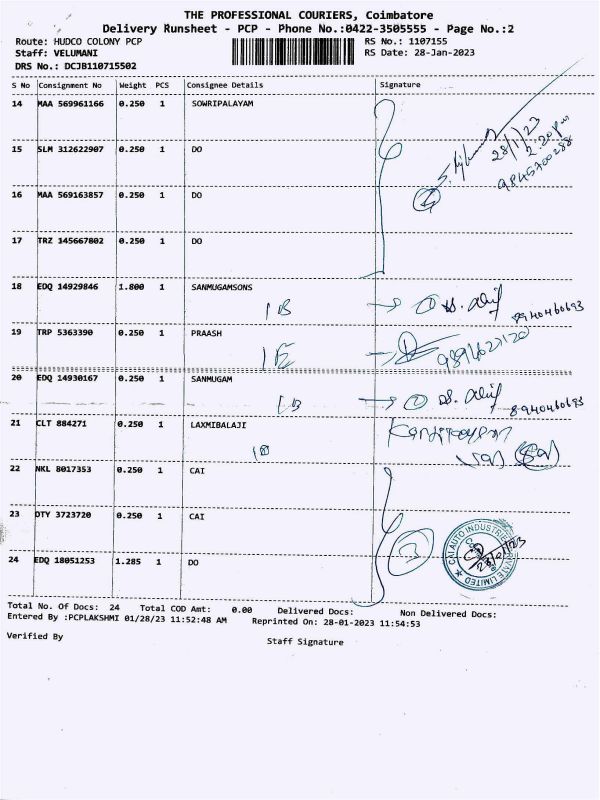 THE PROFESSIONAL COURIERS, Coimbatore
Delivery Runsheet - PCP - Phone No.:0422-3505555 - Page No.:2
Route: HUDCO COLONY PCP RS No.: 1107155
Staff: VELUMANI RS Date: 28-Jan-2023
DRS No.: DCJB110715502
S No Consignment No Weight PCS Consignee Details Signature
14 MAA 569961166 0.250 1 SOWRIPALAYAM
28/1/23
2.20 pm
15 SLM 312622907 0.250 1 DO
16 MAA 569163857 0.250 1 DO
17 TRZ 145667802 0.250 1 DO
18 EDQ 14929846 1.800 1 SANMUGAMSONS
1B → 1
8940460693
19 TRP 5363390 0.250 1 PRAASH
1E
20 EDQ 14930167 0.250 1 SANMUGAM
→ 2
8940460693
21 CLT 884271 0.250 1 LAXMIBALAJI
22 NKL 8017353 0.250 1 CAI
23 DTY 3723720 0.250 1 CAI
3
CAI AUTO INDUSTRIES PRIVATE LIMITED
28/01/23
24 EDQ 18051253 1.285 1 DO
Total No. Of Docs: 24 Total COD Amt: 0.00 Delivered Docs: Non Delivered Docs:
Entered By :PCPLAKSHMI 01/28/23 11:52:48 AM Reprinted On: 28-01-2023 11:54:53
Verified By Staff Signature